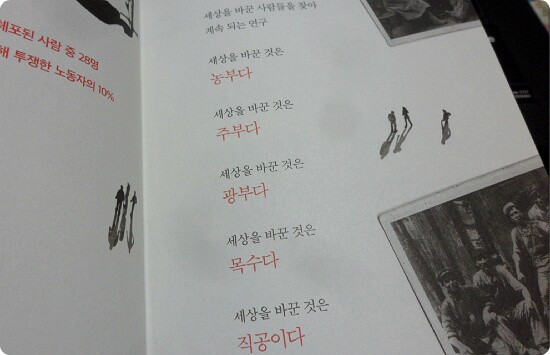 체포된 사람 중 28명
해 투쟁한 노동자의 10%
세상을 바꾼 사람들을 찾아
계속 되는 연구
세상을 바꾼 것은
농부다
세상을 바꾼 것은
주부다
세상을 바꾼 것은
광부다
세상을 바꾼 것은
목수다
세상을 바꾼 것은
직공이다